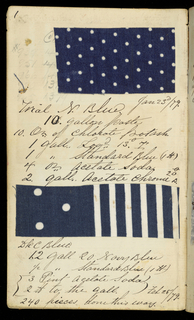 1
Trial N Blue Jan 25/79
10 Gallon Paste
10 Oz of Chlorate Potash
1 Gall
1 " Standard Blue (1#)
4 oz Acetate Soda
2 Gall Acetate Chrome 20
D&C Blue
62 Gall Navy Blue
" Standard Blue (1#)
3 Pint Acetate Soda
to the Gall Feb 25/79
240 pieces done this way